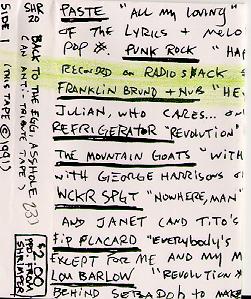 SIDE 1 (THIS TAPE © 1991)
SHR 20
BACK TO THE EGG, ASSHOLE
$2.00 PPD FROM SHRIMPER
PASTE "ALL MY LOVING"
OF THE LYRICS + MELO
POP PUNK ROCK "HA
RECORDED ON RADIO SHACK
FRANKLIN BRUNO + NUB "HE
JULIAN, WHO CARES... ON
REFRIGERATOR "REVOLUTION
THE MOUNTAIN GOATS "WITH
WITH GEORGE HARRISONS O
WCKR SPGT "NOWHERE, MAN
AND JANET (AND TITO'S
FIP PLACARD "EVERYBODY'S
EXCEPT FOR ME AND MY M
LOU BARLOW "REVOLUTION
BEHIND SEBADOH TO MAKE